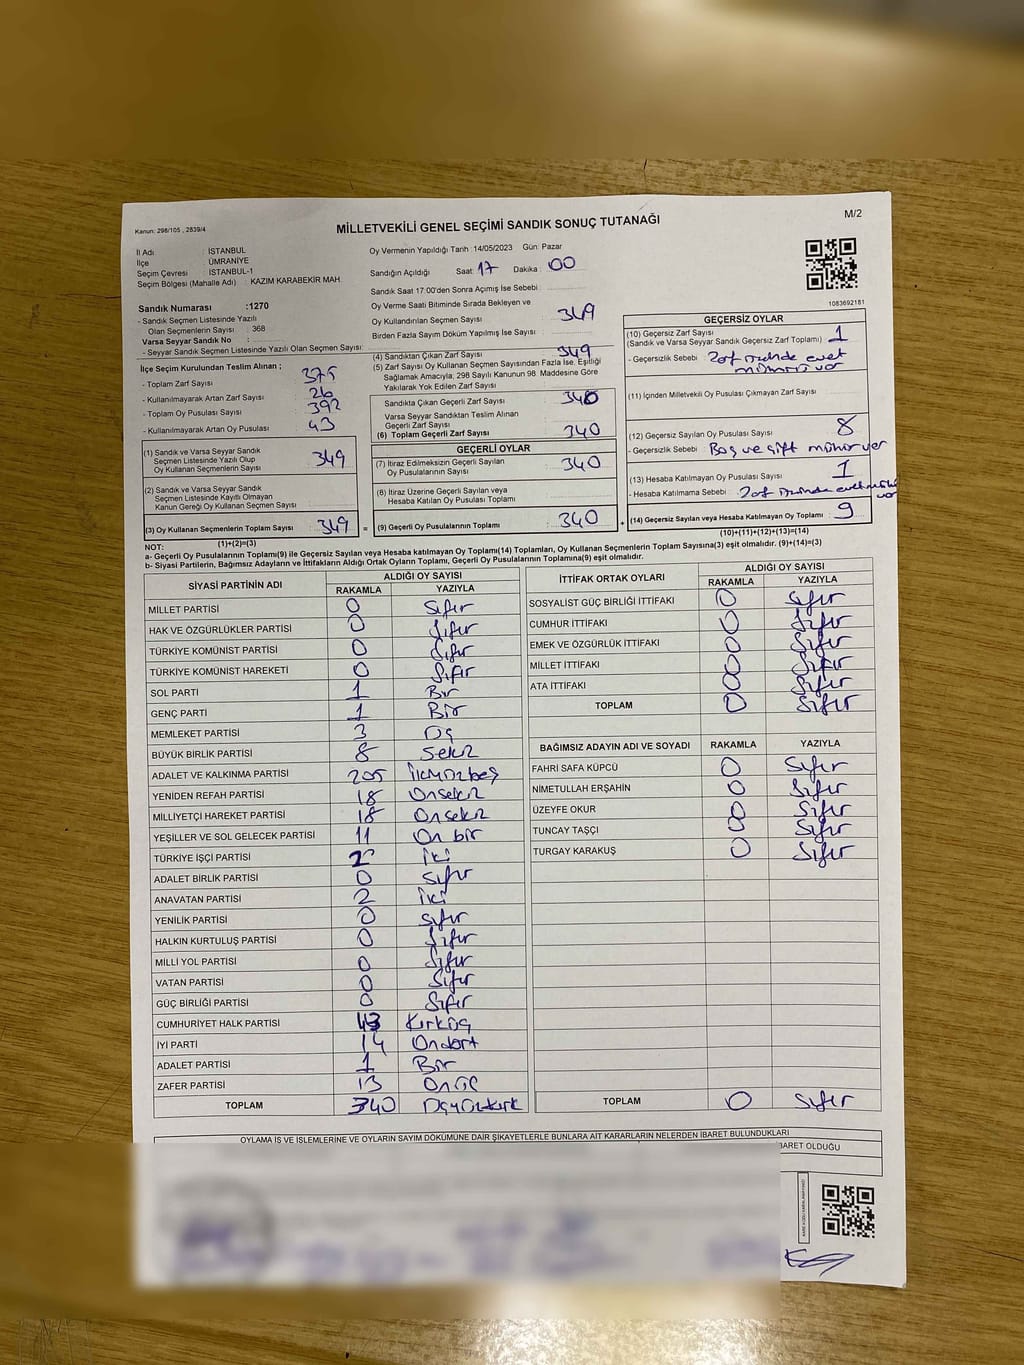 M/2
Kanun: 298/105 , 2839/4
MİLLETVEKİLİ GENEL SEÇİMİ SANDIK SONUÇ TUTANAĞI
İl Adı : İSTANBUL
İlçe : ÜMRANİYE
Seçim Çevresi : İSTANBUL-1
Seçim Bölgesi (Mahalle Adı) : KAZIM KARABEKİR MAH.
Sandık Numarası :1270
- Sandık Seçmen Listesinde Yazılı
Olan Seçmenlerin Sayısı : 368
Varsa Seyyar Sandık No :
- Seyyar Sandık Seçmen Listesinde Yazılı Olan Seçmen Sayısı:
İlçe Seçim Kurulundan Teslim Alınan ;
- Toplam Zarf Sayısı : 375
- Kullanılmayarak Artan Zarf Sayısı : 26
- Toplam Oy Pusulası Sayısı : 392
- Kullanılmayarak Artan Oy Pusulası : 43
(1) Sandık ve Varsa Seyyar Sandık
Seçmen Listesinde Yazılı Olup
Oy Kullanan Seçmenlerin Sayısı 349
(2) Sandık ve Varsa Seyyar Sandık
Seçmen Listesinde Kayıtlı Olmayan
Kanun Gereği Oy Kullanan Seçmen Sayısı
(3) Oy Kullanan Seçmenlerin Toplam Sayısı 349 =
(1)+(2)=(3)
Oy Vermenin Yapıldığı Tarih :14/05/2023 Gün: Pazar
Sandığın Açıldığı Saat: 17 Dakika : 00
Sandık Saat 17:00'den Sonra Açımış İse Sebebi :
Oy Verme Saati Bitiminde Sırada Bekleyen ve
Oy Kullandırılan Seçmen Sayısı : 349
Birden Fazla Sayım Döküm Yapılmış İse Sayısı :
(4) Sandıktan Çıkan Zarf Sayısı 349
(5) Zarf Sayısı Oy Kullanan Seçmen Sayısından Fazla İse, Eşitliği
Sağlamak Amacıyla, 298 Sayılı Kanunun 98. Maddesine Göre
Yakılarak Yok Edilen Zarf Sayısı
Sandıkta Çıkan Geçerli Zarf Sayısı : 340
Varsa Seyyar Sandıktan Teslim Alınan
Geçerli Zarf Sayısı :
(6) Toplam Geçerli Zarf Sayısı 340
GEÇERLİ OYLAR
(7) İtiraz Edilmeksizin Geçerli Sayılan
Oy Pusulalarının Sayısı 340
(8) İtiraz Üzerine Geçerli Sayılan veya
Hesaba Katılan Oy Pusulası Toplamı
(9) Geçerli Oy Pusulalarının Toplamı 340 +
1083692181
GEÇERSİZ OYLAR
(10) Geçersiz Zarf Sayısı 1
(Sandık ve Varsa Seyyar Sandık Geçersiz Zarf Toplamı)
- Geçersizlik Sebebi : Zarf üzerinde evet
mührü var
(11) İçinden Milletvekili Oy Pusulası Çıkmayan Zarf Sayısı
(12) Geçersiz Sayılan Oy Pusulası Sayısı 8
- Geçersizlik Sebebi : Boş ve çift mühür var
(13) Hesaba Katılmayan Oy Pusulası Sayısı 1
- Hesaba Katılmama Sebebi : Zarf üzerinde evet mührü
var
(14) Geçersiz Sayılan veya Hesaba Katılmayan Oy Toplamı 9
(10)+(11)+(12)+(13)=(14)
NOT:
a- Geçerli Oy Pusulalarının Toplamı(9) ile Geçersiz Sayılan veya Hesaba katılmayan Oy Toplamı(14) Toplamları, Oy Kullanan Seçmenlerin Toplam Sayısına(3) eşit olmalıdır. (9)+(14)=(3)
b- Siyasi Partilerin, Bağımsız Adayların ve İttifakların Aldığı Ortak Oyların Toplamı, Geçerli Oy Pusulalarının Toplamına(9) eşit olmalıdır.
SİYASİ PARTİNİN ADI ALDIĞI OY SAYISI
RAKAMLA YAZIYLA
MİLLET PARTİSİ 0 Sıfır
HAK VE ÖZGÜRLÜKLER PARTİSİ 0 Sıfır
TÜRKİYE KOMÜNİST PARTİSİ 0 Sıfır
TÜRKİYE KOMÜNİST HAREKETİ 0 Sıfır
SOL PARTİ 1 Bir
GENÇ PARTİ 1 Bir
MEMLEKET PARTİSİ 3 Üç
BÜYÜK BİRLİK PARTİSİ 8 Sekiz
ADALET VE KALKINMA PARTİSİ 205 İkiyüzbeş
YENİDEN REFAH PARTİSİ 18 Onsekiz
MİLLİYETÇİ HAREKET PARTİSİ 18 Onsekiz
YEŞİLLER VE SOL GELECEK PARTİSİ 11 On bir
TÜRKİYE İŞÇİ PARTİSİ 2 İki
ADALET BİRLİK PARTİSİ 0 Sıfır
ANAVATAN PARTİSİ 2 İki
YENİLİK PARTİSİ 0 Sıfır
HALKIN KURTULUŞ PARTİSİ 0 Sıfır
MİLLİ YOL PARTİSİ 0 Sıfır
VATAN PARTİSİ 0 Sıfır
GÜÇ BİRLİĞİ PARTİSİ 0 Sıfır
CUMHURİYET HALK PARTİSİ 43 Kırküç
İYİ PARTİ 14 Ondört
ADALET PARTİSİ 1 Bir
ZAFER PARTİSİ 13 Onüç
TOPLAM 340 Üçyüzkırk
İTTİFAK ORTAK OYLARI ALDIĞI OY SAYISI
RAKAMLA YAZIYLA
SOSYALİST GÜÇ BİRLİĞİ İTTİFAKI 0 Sıfır
CUMHUR İTTİFAKI 0 Sıfır
EMEK VE ÖZGÜRLÜK İTTİFAKI 0 Sıfır
MİLLET İTTİFAKI 0 Sıfır
ATA İTTİFAKI 0 Sıfır
TOPLAM 0 Sıfır
BAĞIMSIZ ADAYIN ADI VE SOYADI RAKAMLA YAZIYLA
FAHRİ SAFA KÜPCÜ 0 Sıfır
NİMETULLAH ERŞAHİN 0 Sıfır
ÜZEYFE OKUR 0 Sıfır
TUNCAY TAŞÇI 0 Sıfır
TURGAY KARAKUŞ 0 Sıfır
TOPLAM 0 Sıfır
OYLAMA İŞ VE İŞLEMLERİNE VE OYLARIN SAYIM DÖKÜMÜNE DAİR ŞİKAYETLERLE BUNLARA AİT KARARLARIN NELERDEN İBARET BULUNDUKLARI
BARET OLDUĞU